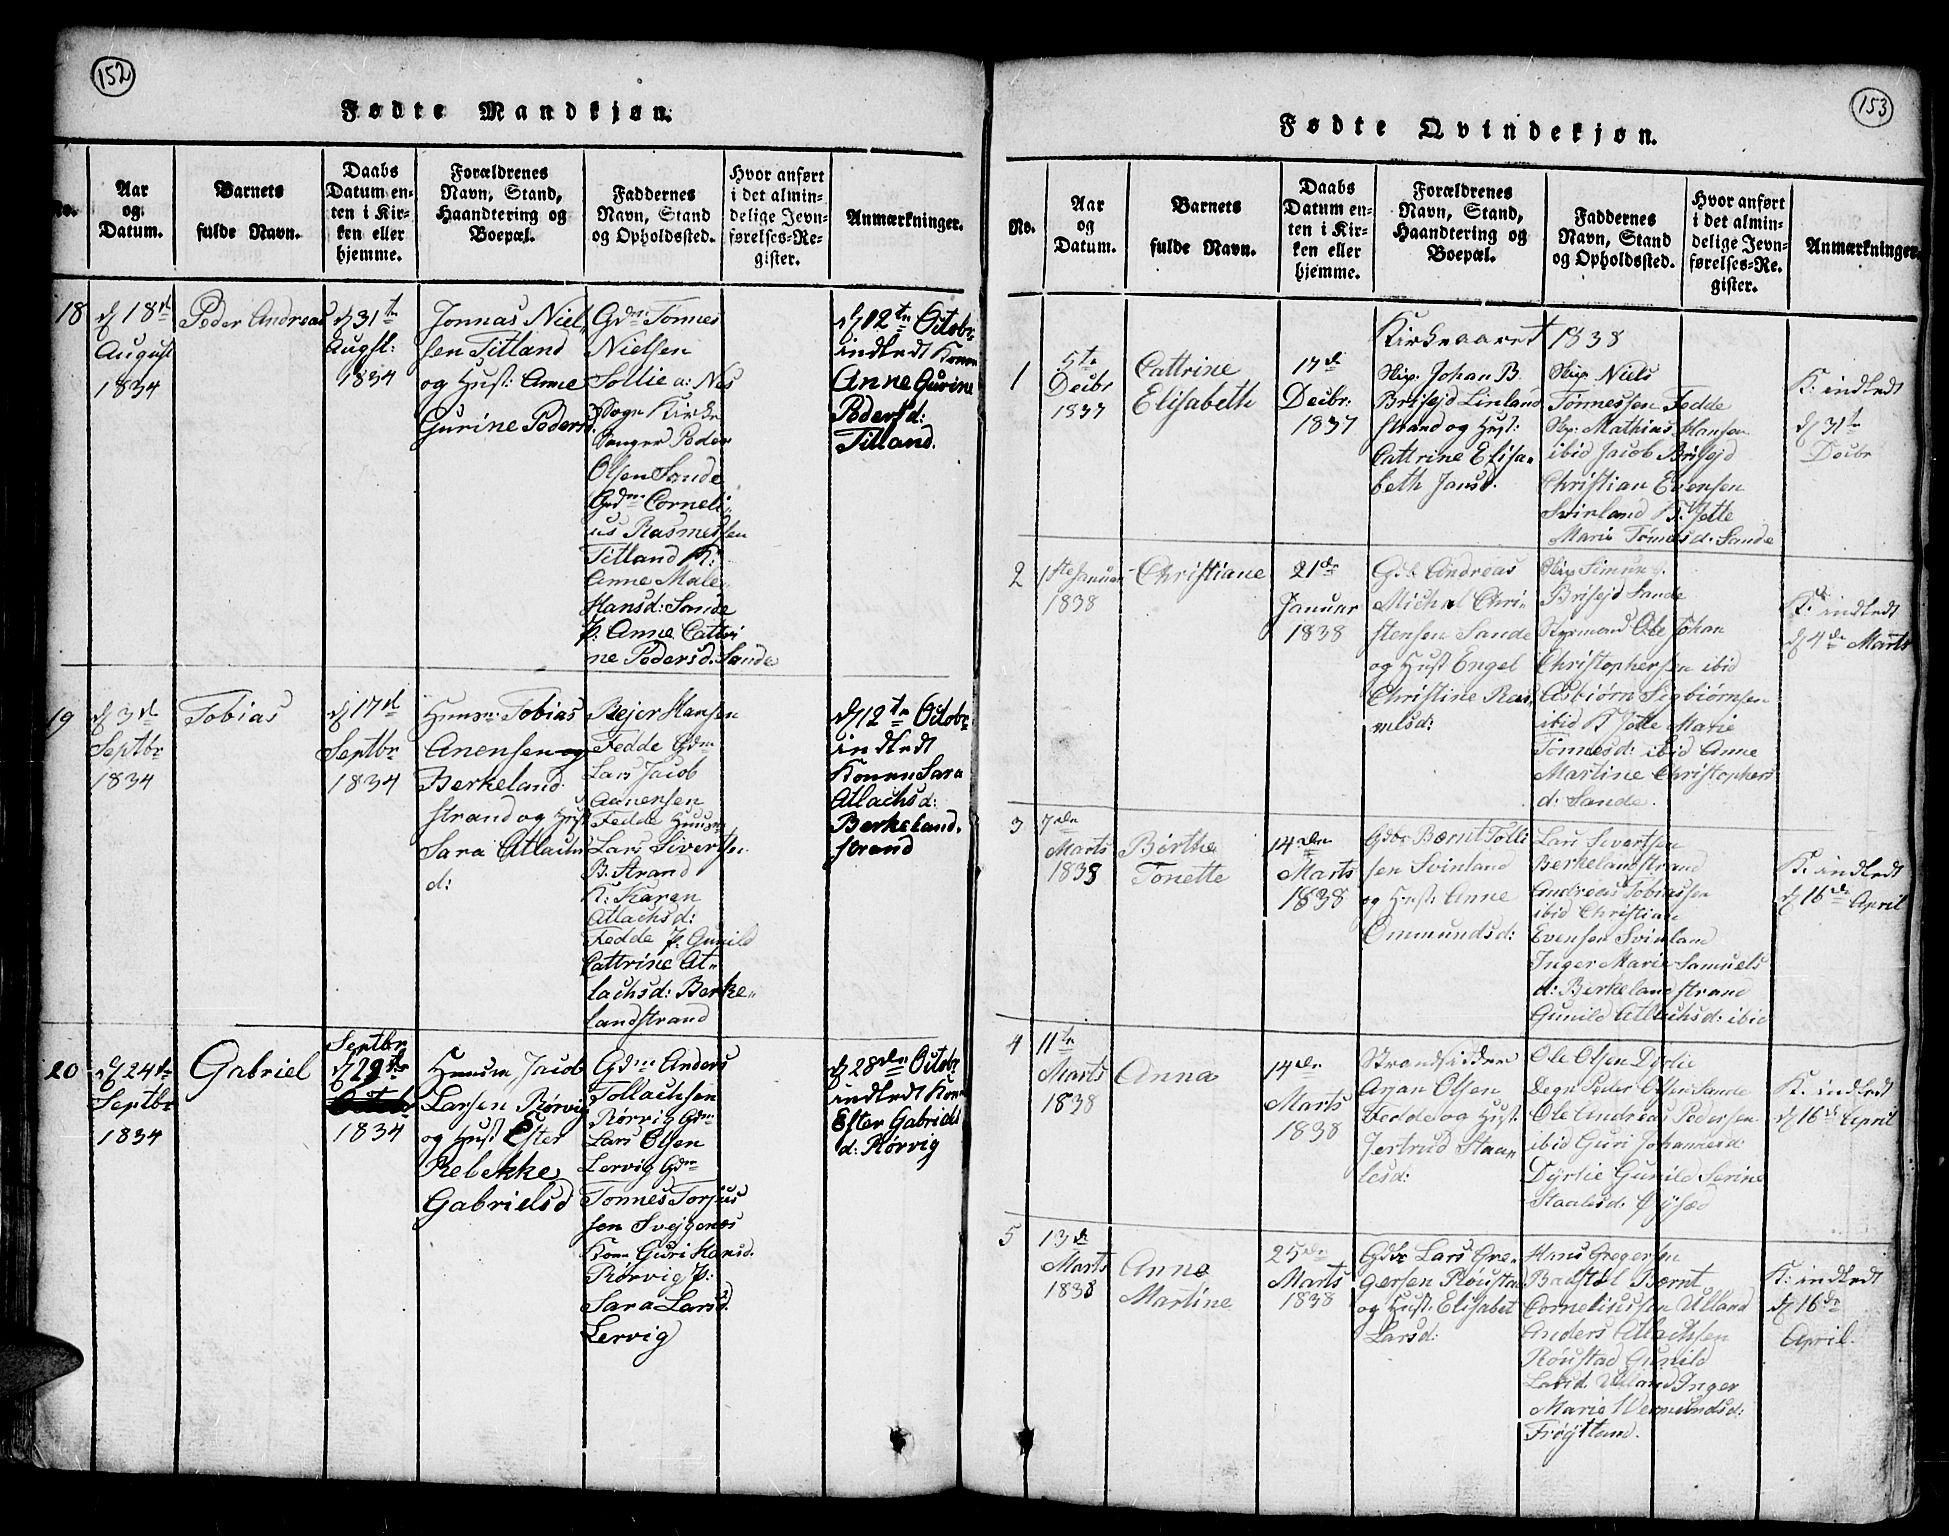 152
Fødte Mandkjøn.
No.
Aar
og
Datum.
Barnets
fulde Navn.
Daabs
Datum en-
ten i Kir-
ken eller
hjemme.
Forældrenes
Navn, Stand,
Haandtering og
Boepæl.
Faddernes
Navn, Stand
og Opholdssted.
Hvor anført
i det almin-
delige Jevn-
førelses-Re-
gister.
Anmærkninger.
18
d 18de
August
1834
Peder Andreas
d 31te
Augst:
1834
Jonnas Niel-
sen Titland
og Hust: Anne
Gurine Peders
Gdm Tønnes
Nielsen
Sollie a: Nes
Sogn Kirke
Sanger Peder
Olsen Sande
Gdm Corneli-
us Rasmussen
Titland K:
Anne Male
Hansd: Sande
P: Anne Cathri
ne Pedersd. Sande
d 12te Octobr
indledt Konen
Anne Gurine
Pedersd:
Titland.
19
d 3de
Septbr
1834
Tobias
d 17de
Septbr
1834
Huusm: Tobias
Anensen og
Berkeland
strand og Hust
Sara Atlachs
d:
Rejer Hansen
Fedde Gdm
Lars Jacob
Aanensen
Fedde Huusm
Lars Sivertsen
B: Strand
K: Karen
Atlachsd:
Fedde P: Gunild
Cattrine At-
lachsd: Berke-
landstrand
d 12te Octobr
indledt
Konen Sara
Atlachsd:
Berkeland-
strand
20
d 24de
Septbr
1834
Gabriel
Septbr
d 29de
1834
Huusm, Jacob
Larsen Rørvig
og Hust Ester
Rebekke
Gabrielsd
Gdm Anders
Tollachsen
Rørvig Gdm
Lars Olsen
Lervig Gdm
Tønnes Torjus
sen Svejgenes
Kone Guri Hansd.
Rørvig P:
Sara Larsd
Lervig
d 28de Octobr
indledt Kone
Ester Gabriels
d: Rørvig
153
Fødte Qvindekjøn.
No.
Aar
og
Datum.
Barnets
fulde Navn.
Daabs
Datum en-
ten i Kir-
ken eller
hjemme.
Forældrenes
Navn, Stand,
Haandtering og
Boepæl.
Faddernes
Navn, Stand
og Opholdssted.
Hvor anført
i det almin-
delige Jevn-
førelses-Re-
gister.
Anmærkninger.
Kirkeaaret 1838
1
5te
Decbr
1837
Cattrine
Elisabeth
17de
Decbr:
1837
Skip. Johan B.
Brisejd Linland
strand og Hust:
Cattrine Elisa-
beth Jansd.
Skip Niels
Tønnessen Fedde
Skp: Mathias Hansen
ibid Jacob Brisejd
Christian Evensen
Svinland K: Jette
Marie Tønnesd: Sande
K: indledt
d 31te
Decbr
2
1ste Januar
1838
Christiane
21de
Januar
1838
Gdb Andreas
Michel Chri-
stensen Sande
og Hust Engel
Christine Ras-
musd:
Skip Simun
Brisejd Sande
Styrmand Ole Johan
Christophersen ibid
Asbiørn Sigbiørnsen
ibid K Jette Marie
Tønnesd: ibid Anne
Martine Christophers
d: Sande.
K: indledt
d 4de Marts
3
7de
Marts
1838
Birthe
Tonette
14de
Marts
1838
Gdbr Bærnt Tolli
sen Svinland
og Hust: Anne
Ommundsd:
Lars Sivertsen
Berkelandstrand
Andreas Tobiassen
ibid Christian
Evensen Svinland
Inger Marie Samuels
d: Berkelandstrand
Gunild Atlachsd: ibid
K: indledt
d 16de April
4
11te
Marts
1838
Anna
14de
Marts
1838
Strandsidder
Arjan Olsen
Fedde og Hust:
Jertrud Staa-
lesd:
Ole Olsen Dyrlie
Degn Peder Olsen Sande
Ole Andreas Pedersen
ibid Guri Johannesd:
Dyrlie Gunild Serine
Staalesd: Øysæd
K. indledt
d 16de April
5
13de
Marts
1838
Anne
Martine
25de
Marts
1838
Gdbr Lars Gre-
gersen Røustad
og Hust: Elisabet
Larsd:
Hans Gregersen
Badstøl Bærnt
Corneliussen Ulland
Anders Atlachsen
Røustad Gunild
Larsd. Ulland Inger
Marie Wermundsd:
Frøytland.
K: indledt
d 16de
April.